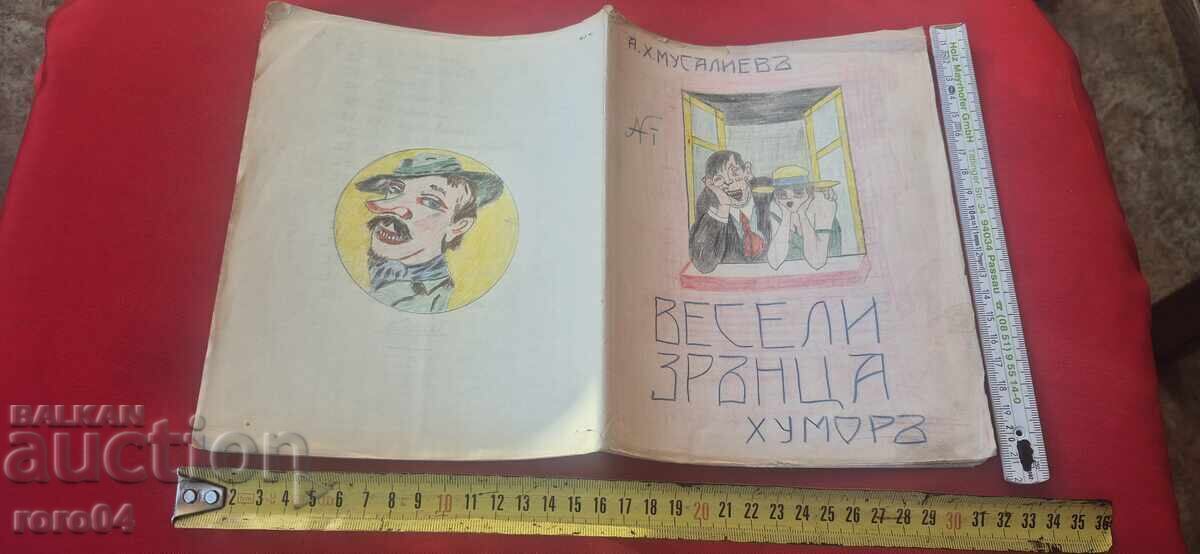 А. Х. МУСАЛИЕВЪ
ВЕСЕЛИ
ЗРЪНЦА
ХУМОРЪ
BALKAN
auction
roro04
Holz Mayrhofer GmbH Tittlinger Str. 34 94034 Passau ☎ (08 51) 9 55 14-0
2 3 4 5 6 7 8 9 10 11 12 13 14 15 16 17 18 19 20 21 22 23 24 25 26 27 28 29 30 31 32 33 34 35 36